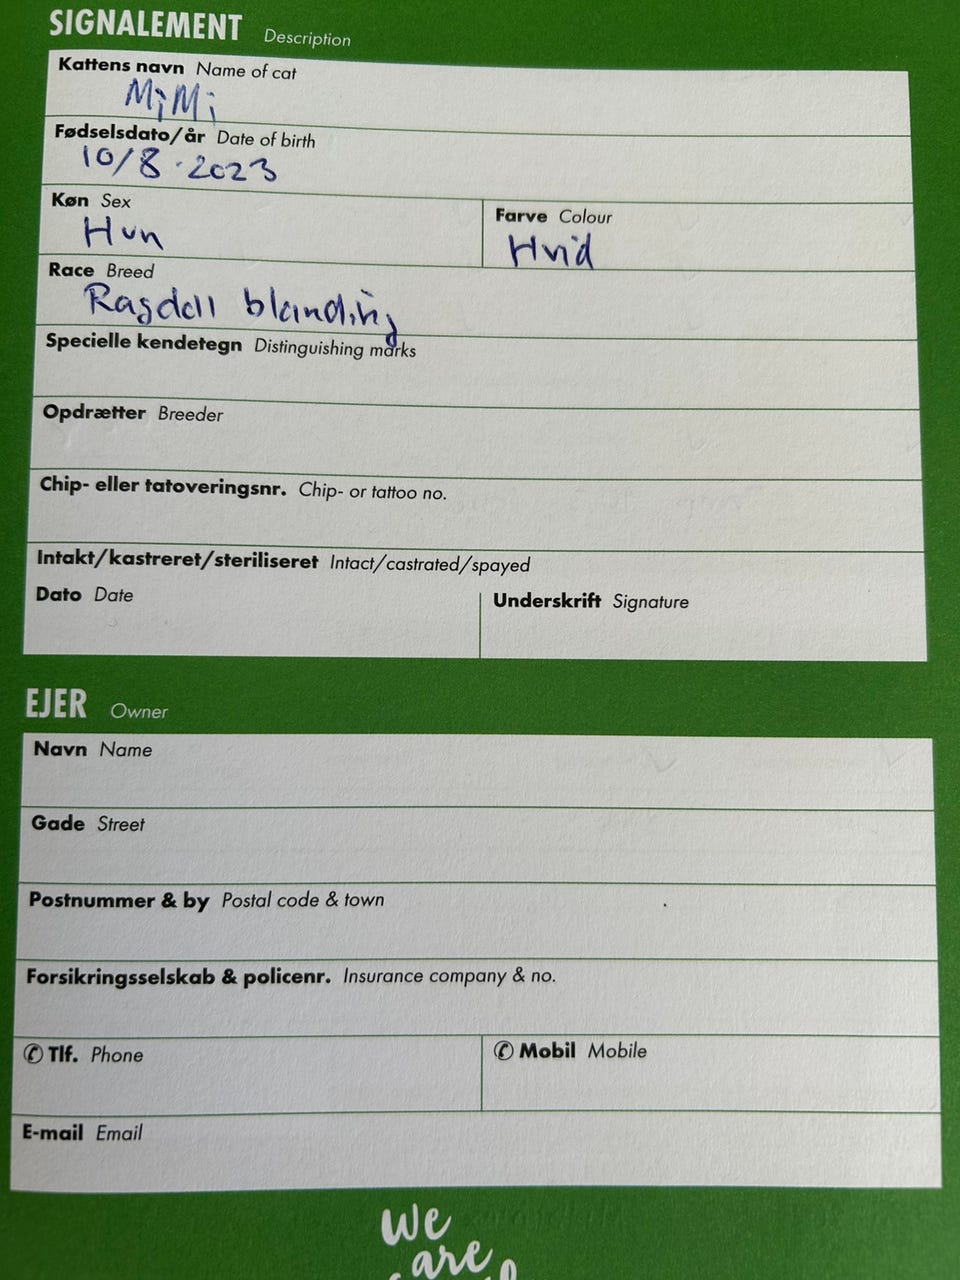 SIGNALEMENT Description
Kattens navn Name of cat
MiMi
Fødselsdato/år Date of birth
10/8-2023
Køn Sex
Hun
Farve Colour
Hvid
Race Breed
Ragdoll blanding
Specielle kendetegn Distinguishing marks
Opdrætter Breeder
Chip- eller tatoveringsnr. Chip- or tattoo no.
Intakt/kastreret/steriliseret Intact/castrated/spayed
Dato Date
Underskrift Signature
EJER Owner
Navn Name
Gade Street
Postnummer & by Postal code & town
Forsikringsselskab & policenr. Insurance company & no.
✆ Tlf. Phone
✆ Mobil Mobile
E-mail Email
we
are